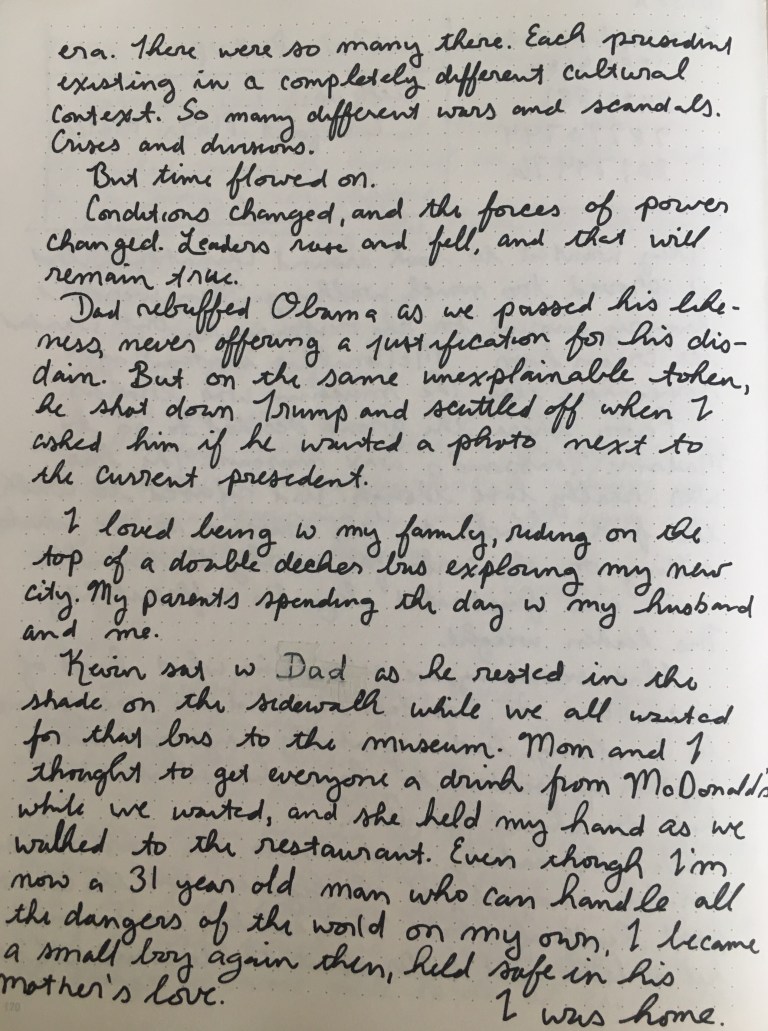 era. There were so many there. Each president
existing in a completely different cultural
context. So many different wars and scandals.
Crises and divisions.
But time flowed on.
Conditions changed, and the forces of power
changed. Leaders rose and fell, and that will
remain true.
Dad rebuffed Obama as we passed his like-
ness, never offering a justification for his dis-
dain. But on the same unexplainable token,
he shot down Trump and scuttled off when I
asked him if he wanted a photo next to
the current president.
I loved being w my family, riding on the
top of a double decker bus exploring my new
city. My parents spending the day w my husband
and me.
Kevin sat w Dad as he rested in the
shade on the sidewalk while we all waited
for that bus to the museum. Mom and I
thought to get everyone a drink from McDonald's
while we waited, and she held my hand as we
walked to the restaurant. Even though I'm
now a 31 year old man who can handle all
the dangers of the world on my own, I became
a small boy again then, held safe in his
mother's love.
I was home.